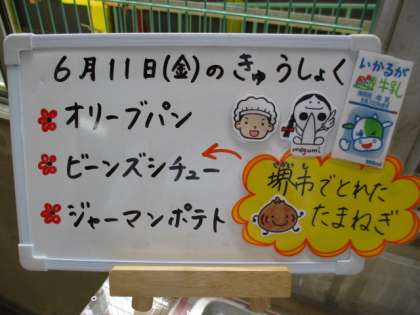 6月11日(金)のきゅうしょく
オリーブパン
ビーンズシチュー
ジャーマンポテト
megumi
いかるが
牛乳
堺市でとれた
たまねぎ